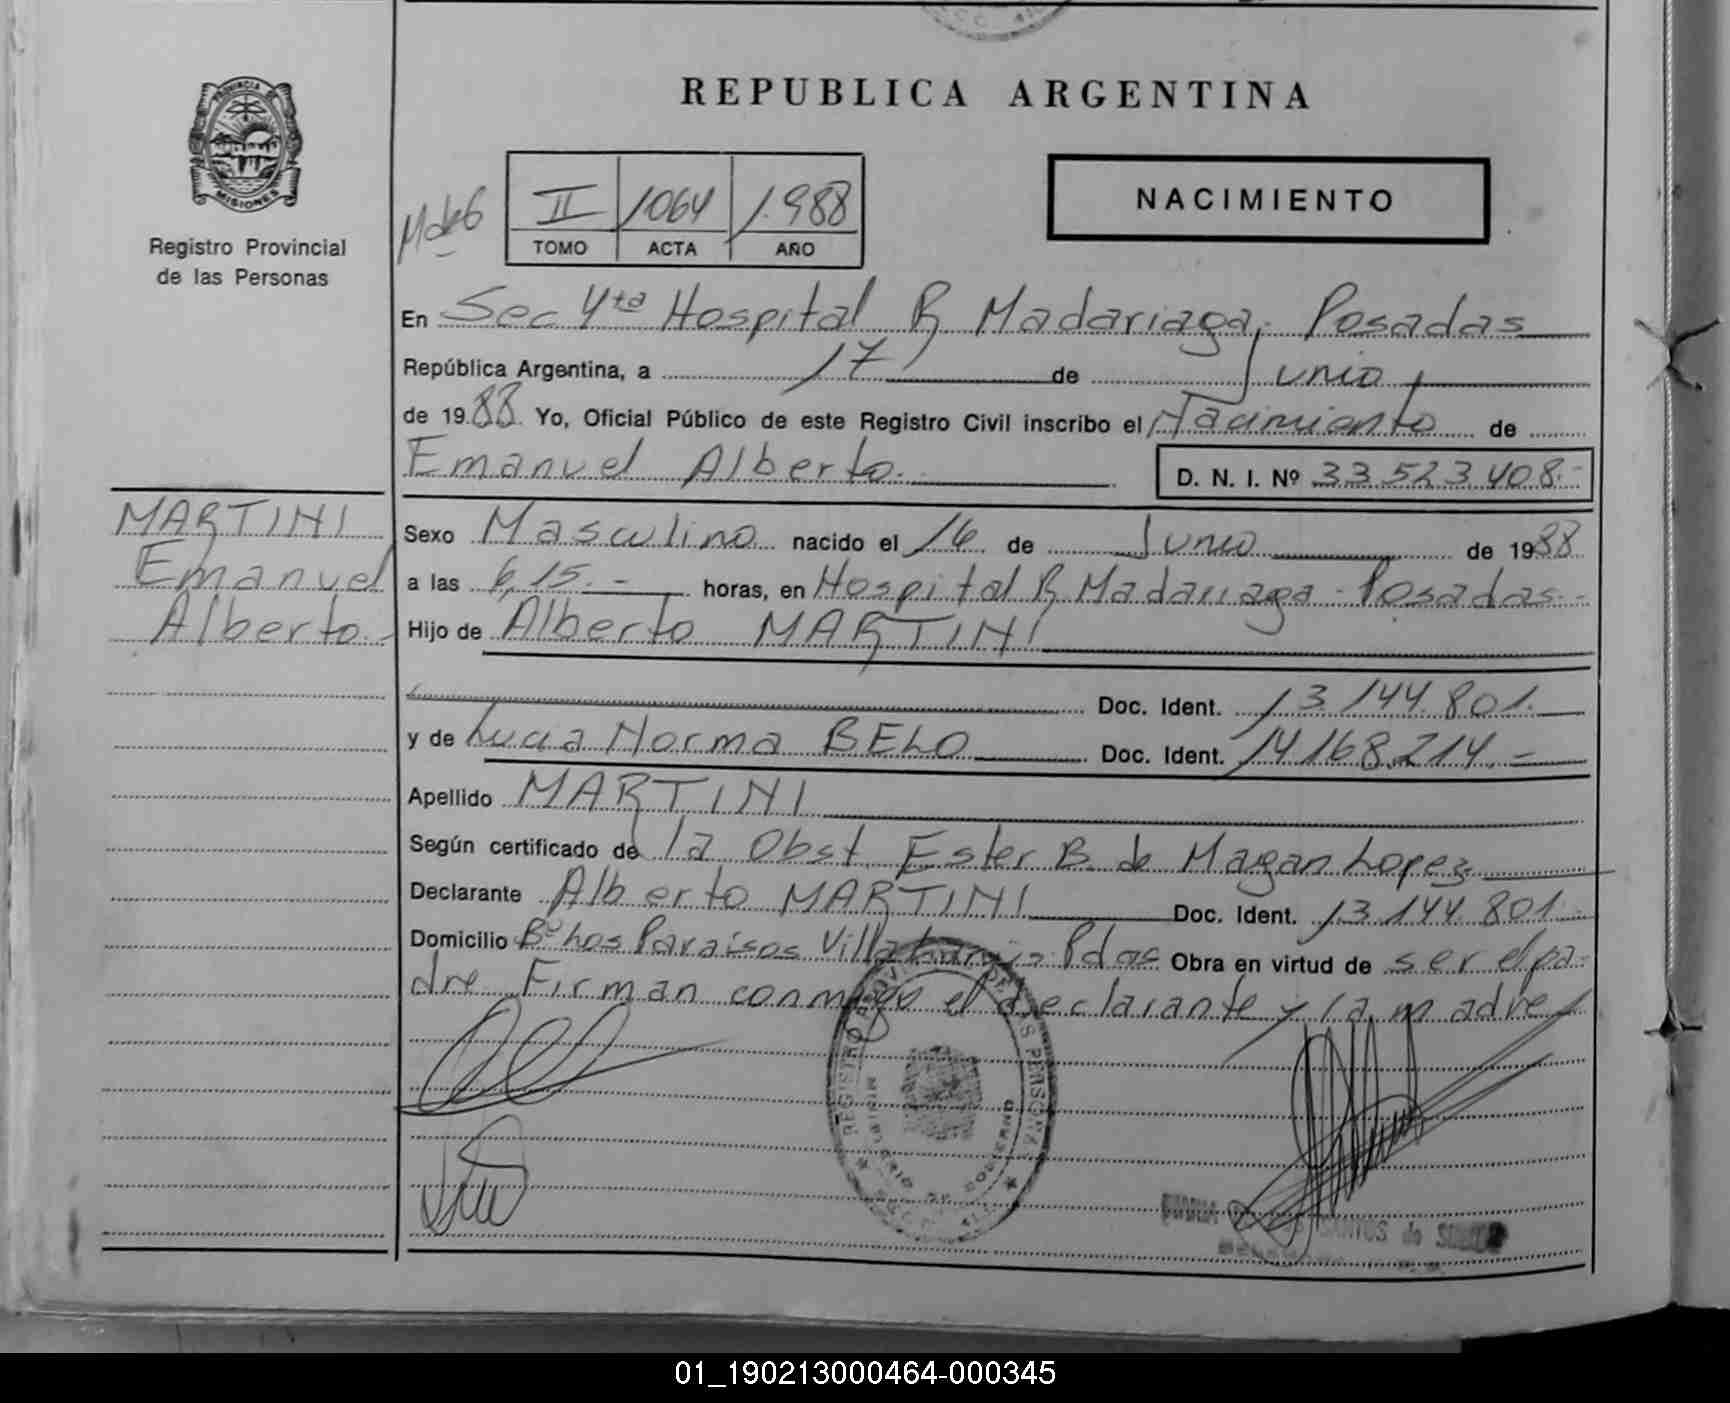 REPUBLICA ARGENTINA
PROVINCIA DE
MISIONES
Registro Provincial
de las Personas
II 1064 1.988
TOMO ACTA AÑO
NACIMIENTO
En Sec 4ta Hospital R Madariaga, Posadas
República Argentina, a 17 de Junio
de 1988 Yo, Oficial Público de este Registro Civil inscribo el Nacimiento de
Emanuel Alberto.
D. N. I. Nº 33 523 408.-
MARTINI
Emanuel
Alberto.-
Sexo Masculino nacido el 16 de Junio de 1988
a las 6,15.- horas, en Hospital R Madariaga - Posadas.-
Hijo de Alberto MARTINI
Doc. Ident. 13.144.801.
y de Lucia Norma BELO Doc. Ident. 14.168.214.-
Apellido MARTINI
Según certificado de la Obst Ester B. de Magan Lopez
Declarante Alberto MARTINI Doc. Ident. 13.144.801.-
Domicilio Bº Los Paraisos Villa Pdas Obra en virtud de ser el pa-
dre Firman conmigo el declarante y la madre
REGISTRO PROVINCIAL DE LAS PERSONAS
MINISTERIO DE GOBIERNO
SANTOS de
01_190213000464-000345